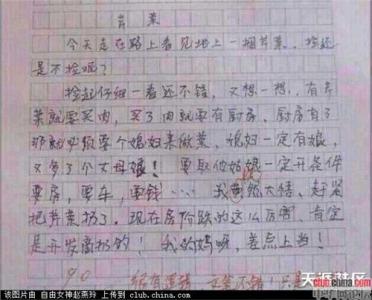 芹菜
今天走在路上看见地上一捆芹菜，捡还
是不捡呢？
捡起仔细一看还不错，又想一想，有芹
菜就要买肉，买了肉就要有厨房，厨房有了
那就必须要个媳妇来做菜，媳妇一定有娘，
又多了个丈母娘！要取她姑娘一定开条件
要房，要车，要钱……我 然大悟，赶紧
把芹菜扔了。现在房价跌的这么厉害，肯定
是开发商扔的！我的妈呀，差点上当！
90
该图片由 自由女神赵燕玲 上传到 club.china.com
天涯社区
club.china.com